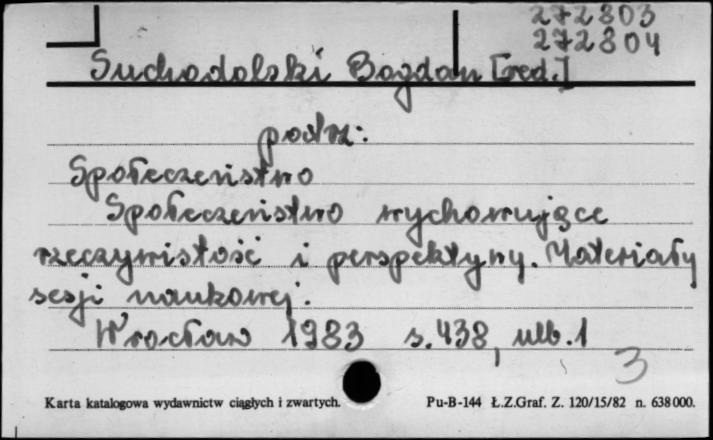 272803
272804
Suchodolski Bogdan [red.]
patrz:
Społeczeństwo
Społeczeństwo wychowujące
rzeczywistość i perspektywy. Materiały
sesji naukowej.
Wrocław 1983 s.438, nlb.1
3
Karta katalogowa wydawnictw ciągłych i zwartych. Pu-B-144 Ł.Z.Graf. Z. 120/15/82 n. 638000.